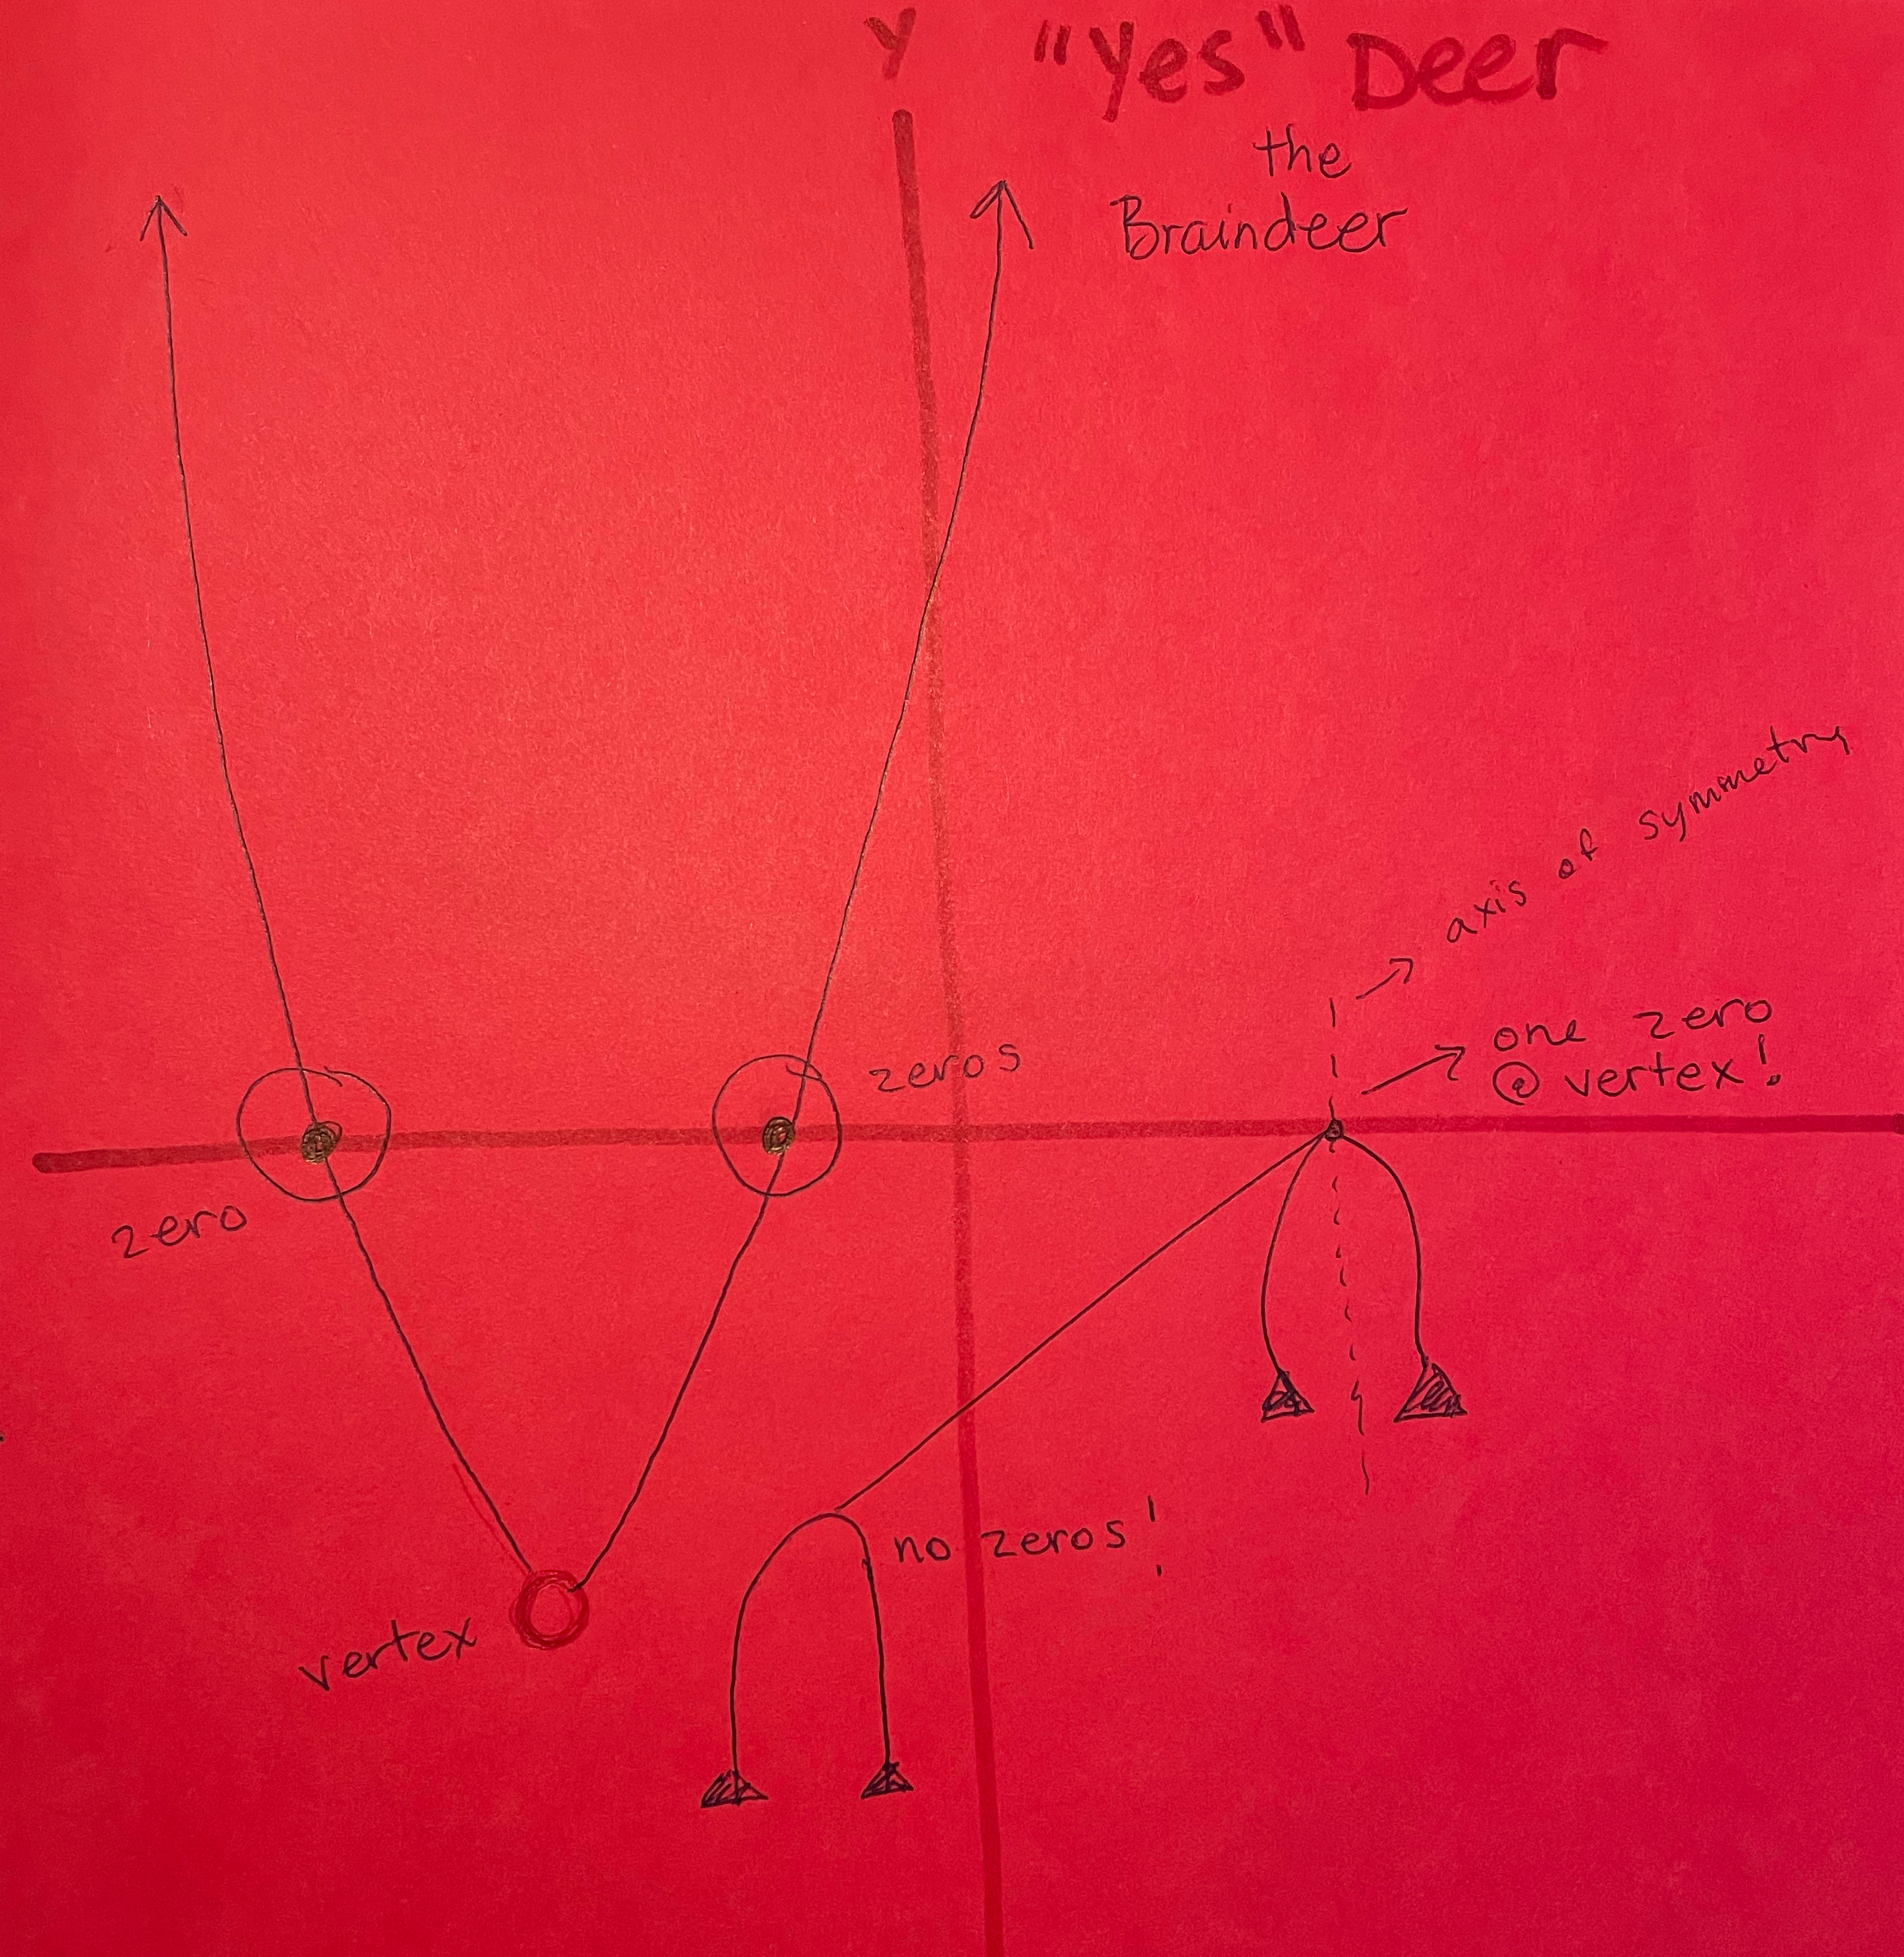 Y
"Yes" Deer
the
Braindeer
axis of symmetry
one zero
@ vertex!
zeros
zero
no zeros!
vertex